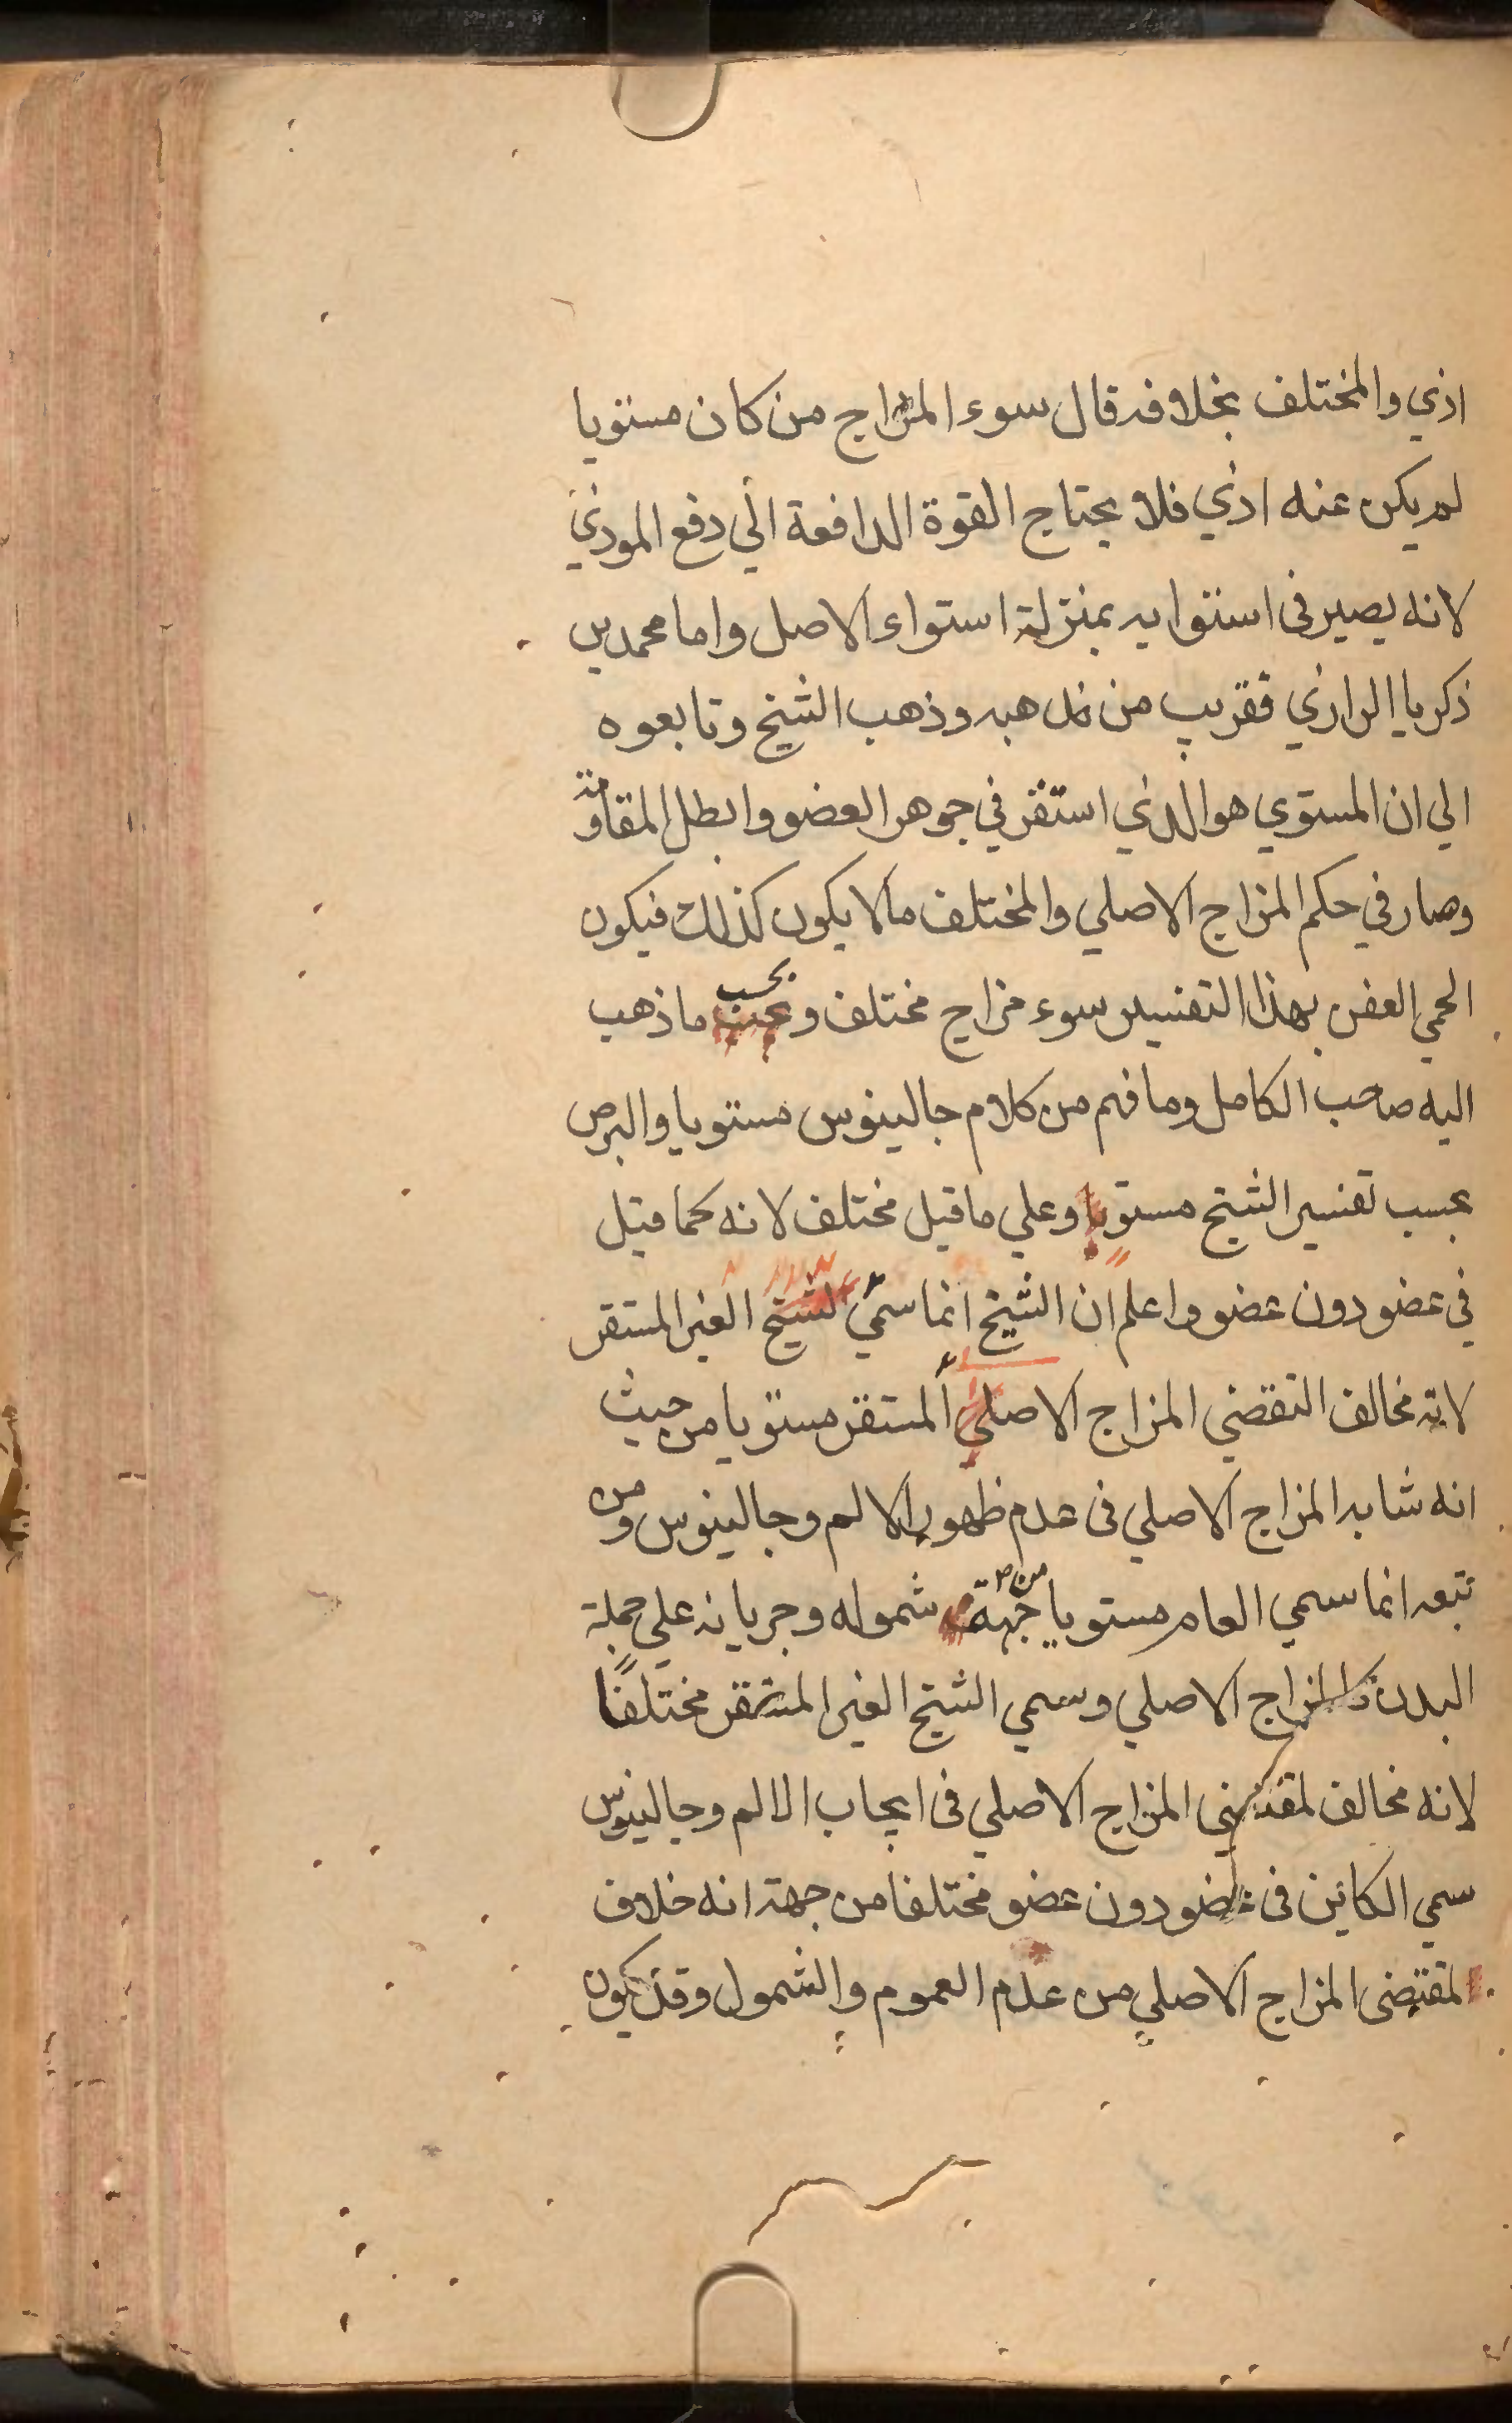 اذي والمختلف بخلافه قال سوء المزاج من كان مستويا
لم يكن عنه اذي فلا يحتاج القوة الدافعة الي دفع الموذي
لانه يصير في استوايه بمنزلة استواء الاصل واما محمد بن
ذكريا الرازي فقريب من مذهبه وذهب الشيخ وتابعوه
الي ان المستوي هو الذي استقر في جوهر العضو وابطل المقاومة
وصار في حكم المزاج الاصلي والمختلف ما لا يكون كذلك فيكون
الحمي العفن بهذا التفسير سوء مزاج مختلف و بحسب ما ذهب
اليه صاحب الكامل وما فهم من كلام جالينوس مستويا والبرص
بحسب تفسير الشيخ مستويا وعلي ما قيل مختلف لانه كما قيل
في عضو دون عضو واعلم ان الشيخ انما سمي الشيخ الغير المستقر
لانه مخالف التقضي المزاج الاصلي المستقر مستويا من حيث
انه شابه المزاج الاصلي في عدم ظهور الالم وجالينوس ومن
تبعه انما سمي العام مستويا من جهة شموله وجريانه علي جملة
البدن كالمزاج الاصلي وسمي الشيخ الغير المستقر مختلفًا
لانه مخالف لمقتضي المزاج الاصلي في ايجاب الالم وجالينوس
سمي الكاين في عضو دون عضو مختلفا من جهة انه خلاف
لمقتضي المزاج الاصلي من عدم العموم والشمول وقد يكون